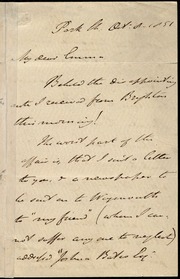 Park St. Oct. 8. 1851
My dear Emma
Behold the disappointing
note I received from Brighton
this morning!
The worst part of the
affair is, that I sent a letter
to you, & a newspaper to
be sent on to Weymouth
to "my friend" (whom I can
not suffer any one to neglect)
addressed "Joshua Bates Esq.